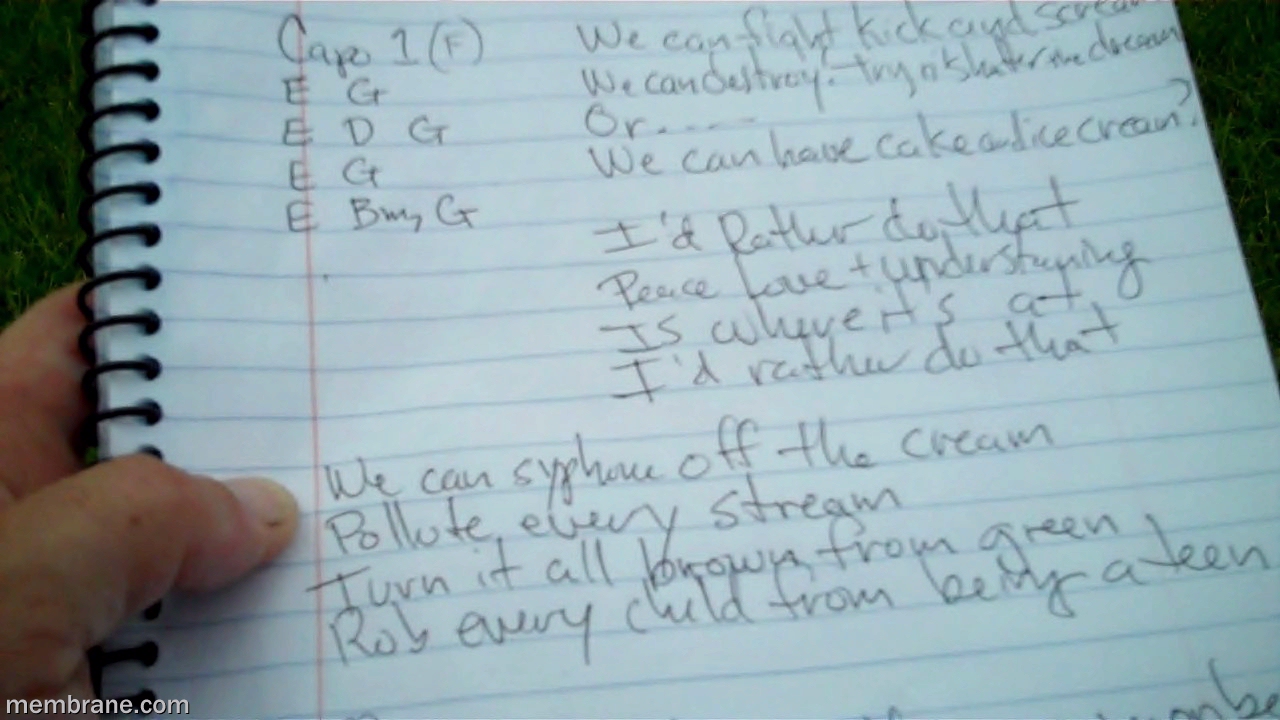 Capo 1 (F)
E G
E D G
E G
E Bm, G
We can fight kick and scream
We can destroy. try n' shatter the dream
Or.....
We can have cake and ice cream?
I'd Rather do that
Peace Love + understanding
Is where it's at,
I'd rather do that
We can syphon off the cream
Pollute every stream
Turn it all brown from green
Rob every child from being a teen
membrane.com